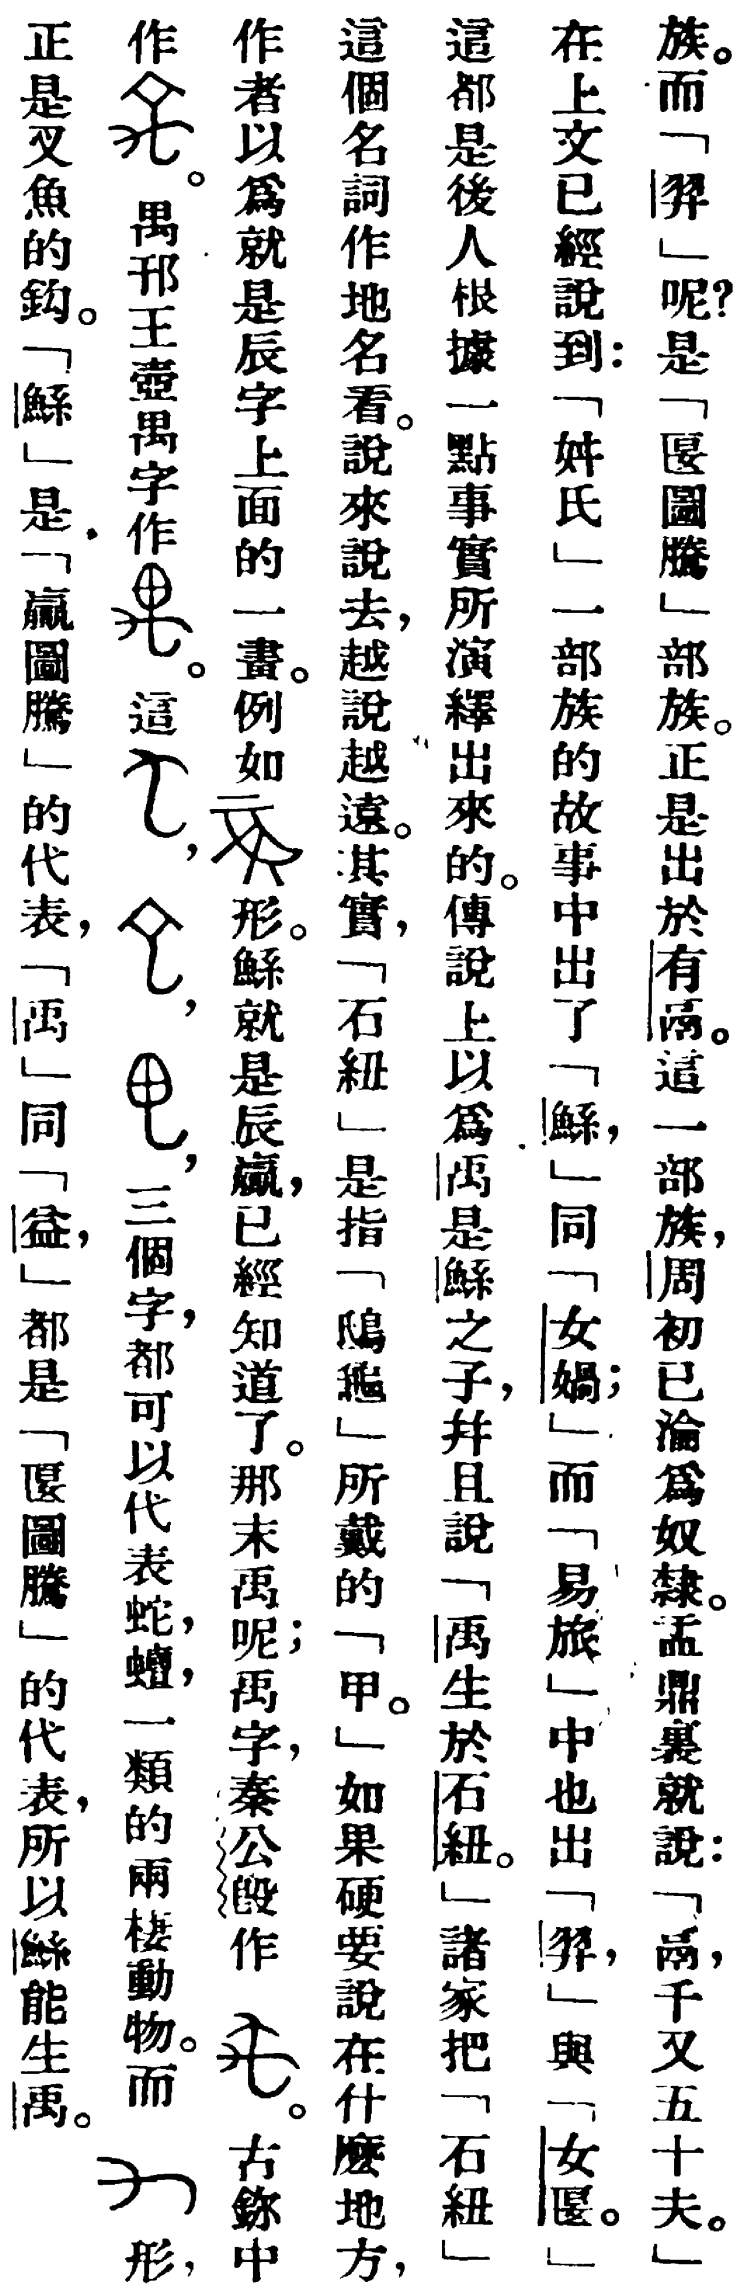 族。而「羿」呢?是「匽圖騰」部族。正是出於有鬲。這一部族,周初已淪爲奴隸。盂鼎裏就說:「鬲,千又五十夫。」
在上文已經說到:「姺氏」一部族的故事中出了「鯀,」同「女媧;」而「易旅」中也出「羿,」與「女匽。」
這都是後人根據一點事實所演繹出來的。傳說上以爲禹是鯀之子,幷且說「禹生於石紐。」諸家把「石紐」
這個名詞作地名看。說來說去,越說越遠。其實,「石紐」是指「鴟龜」所戴的「甲。」如果硬要說在什麽地方,
作者以爲就是辰字上面的一畫。例如 形。鯀就是辰嬴,已經知道了。那末禹呢;禹字,秦公𣪘作 。古鉨中
作 。禺邗王壺禺字作 。這 , , ,三個字,都可以代表蛇,蟺,一類的兩棲動物。而 形,
正是叉魚的鈎。「鯀」是「嬴圖騰」的代表,「禹」同「益,」都是「匽圖騰」的代表,所以鯀能生禹。